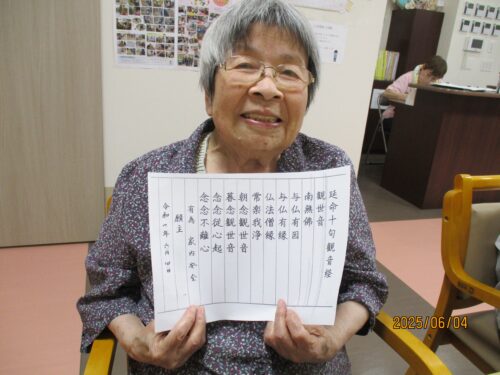 延命十句観音経
観世音
南無佛
与仏有因
与仏有縁
仏法僧縁
常楽我浄
朝念観世音
暮念観世音
念念従心起
念念不離心
為 家内安全
願主
令和七年 六月四日
2025/06/04